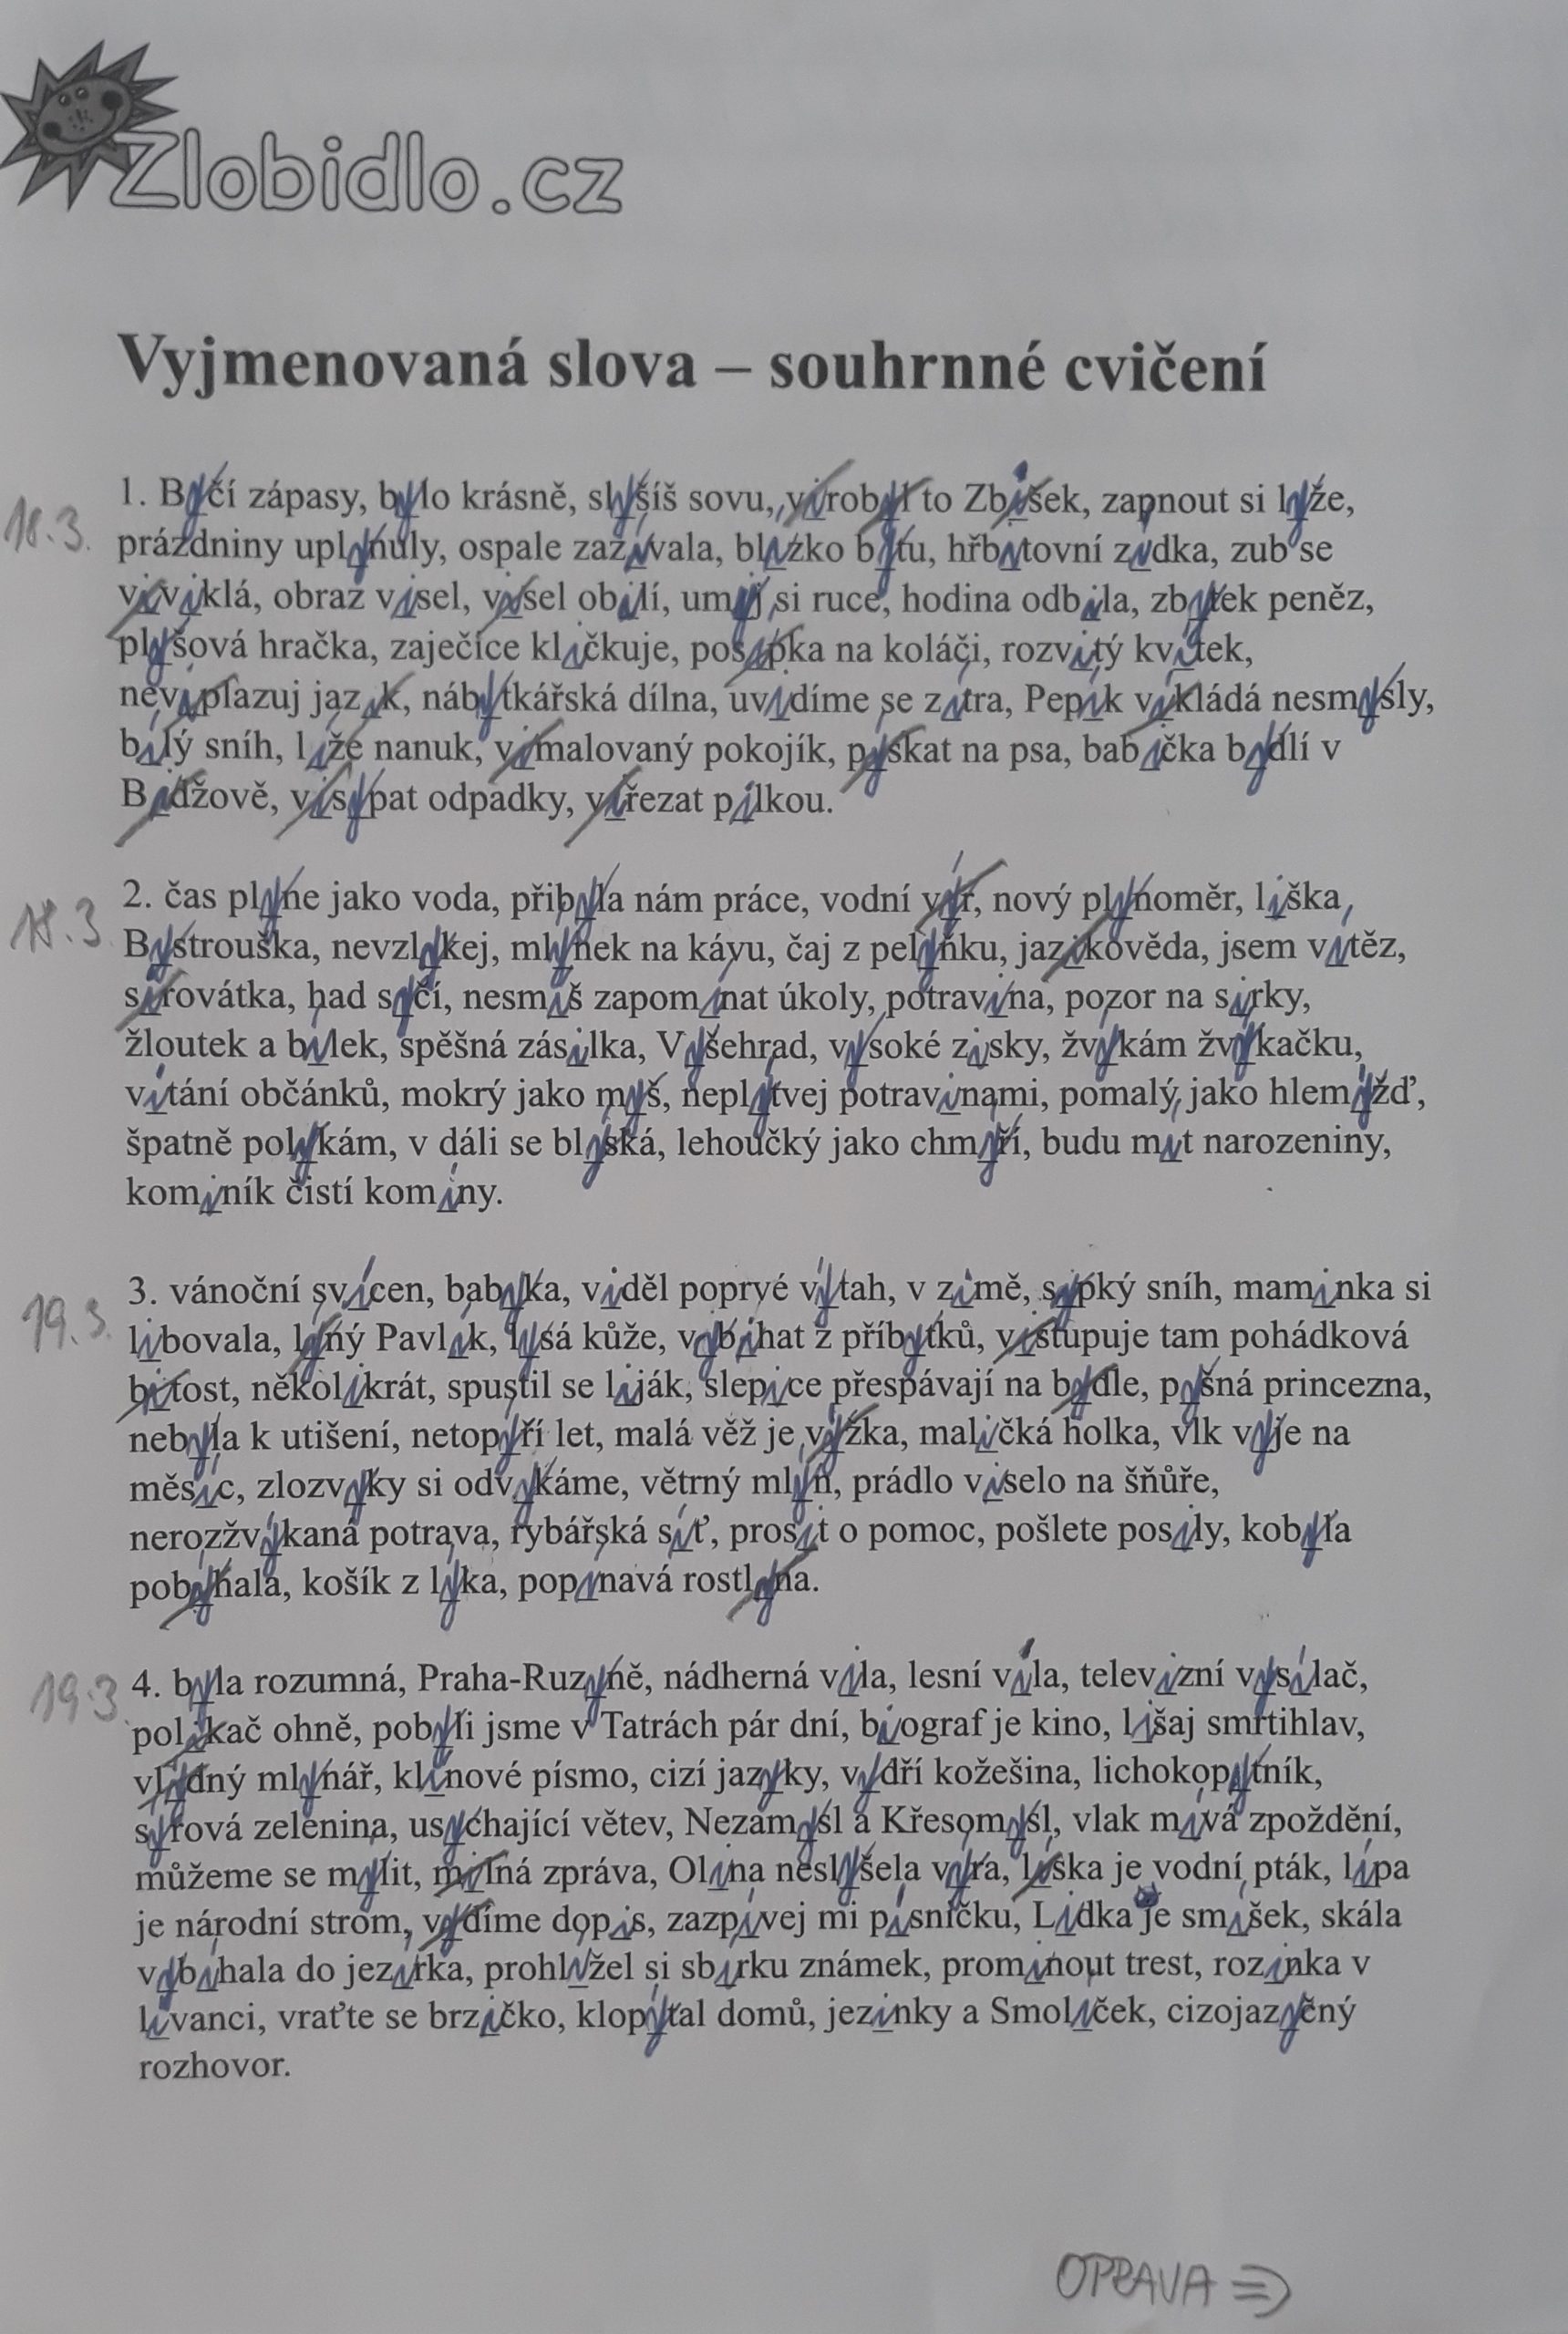 Zlobidlo.cz
Vyjmenovaná slova – souhrnné cvičení
18.3.
1. Býčí zápasy, bylo krásně, slyšíš sovu, virobyl to Zbišek, zapnout si lyže,
prázdniny uplynuly, ospale zazívala, blízko bytu, hřbitovní zídka, zub se
viviklá, obraz visel, visel obilí, umyj si ruce, hodina odbila, zbytek peněz,
plyšová hračka, zaječice kličkuje, posipka na koláči, rozvitý kvítek,
neviplazuj jazik, nábytkářská dílna, uvidíme se zítra, Pepík vikládá nesmysly,
bílý sníh, líže nanuk, vimalovaný pokojík, pyskat na psa, babička bydlí v
Bidžově, visypat odpadky, viřezat pilkou.
18.3
2. čas plyne jako voda, přibyla nám práce, vodní výr, nový plynoměr, liška
Bystrouška, nevzlykej, mlýnek na kávu, čaj z pelyňku, jazikověda, jsem vítěz,
sirovátka, had syčí, nesmíš zapomínat úkoly, potravina, pozor na sirky,
žloutek a bílek, spěšná zásilka, Vyšehrad, vysoké zisky, žvýkám žvýkačku,
vítání občánků, mokrý jako myš, neplýtvej potravinami, pomalý jako hlemýžď,
špatně polykám, v dáli se blýská, lehoučký jako chmýří, budu mít narozeniny,
kominík čistí komíny.
19.3.
3. vánoční svícen, babyka, viděl poprvé výtah, v zimě, sypký sníh, maminka si
libovala, lýný Pavlík, lysá kůže, vybíhat z příbytků, vistupuje tam pohádková
bitost, několikrát, spustil se liják, slepice přespávají na bydle, pyšná princezna,
nebyla k utišení, netopýří let, malá věž je výžka, maličká holka, vlk vyje na
měsíc, zlozvyky si odvykáme, větrný mlýn, prádlo viselo na šňůře,
nerozžvýkaná potrava, rybářská síť, prosit o pomoc, pošlete posily, kobyla
pobýhala, košík z lýka, popínavá rostlyna.
19.3.
4. byla rozumná, Praha-Ruzyně, nádherná vila, lesní víla, televizní vysílač,
polikač ohně, pobyli jsme v Tatrách pár dní, biograf je kino, lišaj smrtihlav,
vlýdný mlynář, klínové písmo, cizí jazyky, vydří kožešina, lichokopytník,
syrová zelenina, usychající větev, Nezamysl a Křesomysl, vlak mívá zpoždění,
můžeme se mýlit, milná zpráva, Olina neslyšela výra, líska je vodní pták, lípa
je národní strom, vydíme dopis, zazpívej mi písničku, Lidka je smíšek, skála
vybíhala do jezírka, prohlížel si sbírku známek, prominout trest, rozinka v
lívanci, vraťte se brzičko, klopýtal domů, jezinky a Smolíček, cizojazyčný
rozhovor.
OPRAVA ⇒